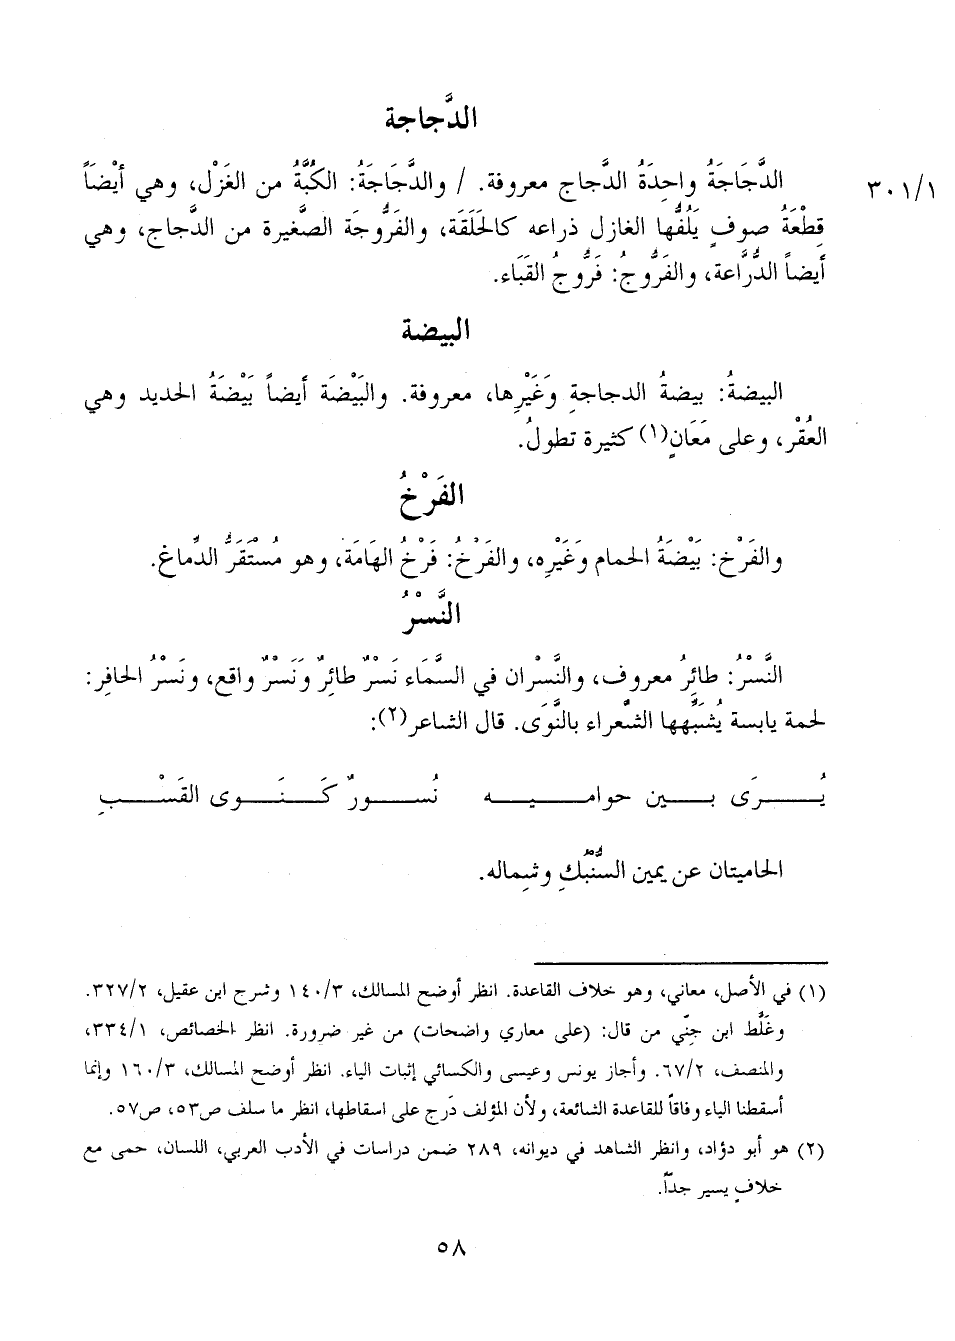 الدَّجاجة
الدَّجَاجَةُ واحِدَةُ الدَّجاج معروفة. / والدَّجَاجَةُ: الكُبَّةُ من الغَزْل، وهي أيْضَاً
٣٠١/١
قِطْعَةُ صوفٍ يَلُفُّها الغازل ذراعه كالحَلَقَة، والفَرُّوجَة الصَّغيرة من الدَّجاج، وهي
أيضاً الدُّرَّاعة، والفَرُّوجُ: فَرُّوجُ القَبَاء.
البيضة
البيضةُ: بيضةُ الدجاجةِ وَغَيْرِها، معروفة. والبَيْضَة أيضاً بَيْضَةُ الحديد وهي
العُقْر، وعلى مَعَانٍ(١) كثيرة تطولُ.
الفَرْخُ
والفَرْخ: بَيْضَةُ الحمام وَغَيْرِه، والفَرْخُ: فَرْخُ الهَامَة، وهو مُسْتَقَرُّ الدِّماغ.
النَّسْرُ
النَّسْرُ: طائِرُ معروف، والنَّسْران في السَّمَاء نَسْرٌ طائِرٌ وَنَسْرٌ واقع، ونَسْرُ الحافِر:
لحمة يابسة يُشَبِّهها الشُّعراء بالنَّوَى. قال الشاعر(٢):
يُـرَى بـين حواميـه نُـسـورٌ كَـنَـوى القَسْـبِ
الحاميتان عن يمين السُّنْبُكِ وشِماله.
(١) في الأصل، معاني، وهو خلاف القاعدة. انظر أوضح المسالك، ١٤٠/٣ وشرح ابن عقيل، ٣٢٧/٢.
وغَلَّط ابن جنّي من قال: (على معاري واضحات) من غير ضرورة. انظر الخصائص، ٣٣٤/١،
والمنصف، ٦٧/٢. وأجاز يونس وعيسى والكسائي إثبات الياء. انظر أوضح المسالك، ١٦٠/٣ وإنما
أسقطنا الياء وفاقاً للقاعدة الشائعة، ولأن المؤلف دَرج على اسقاطها، انظر ما سلف ص٥٣، ص٥٧.
(٢) هو أبو دؤاد، وانظر الشاهد في ديوانه، ٢٨٩ ضمن دراسات في الأدب العربي، اللسان، حمى مع
خلافٍ يسير جدّاً.
٥٨